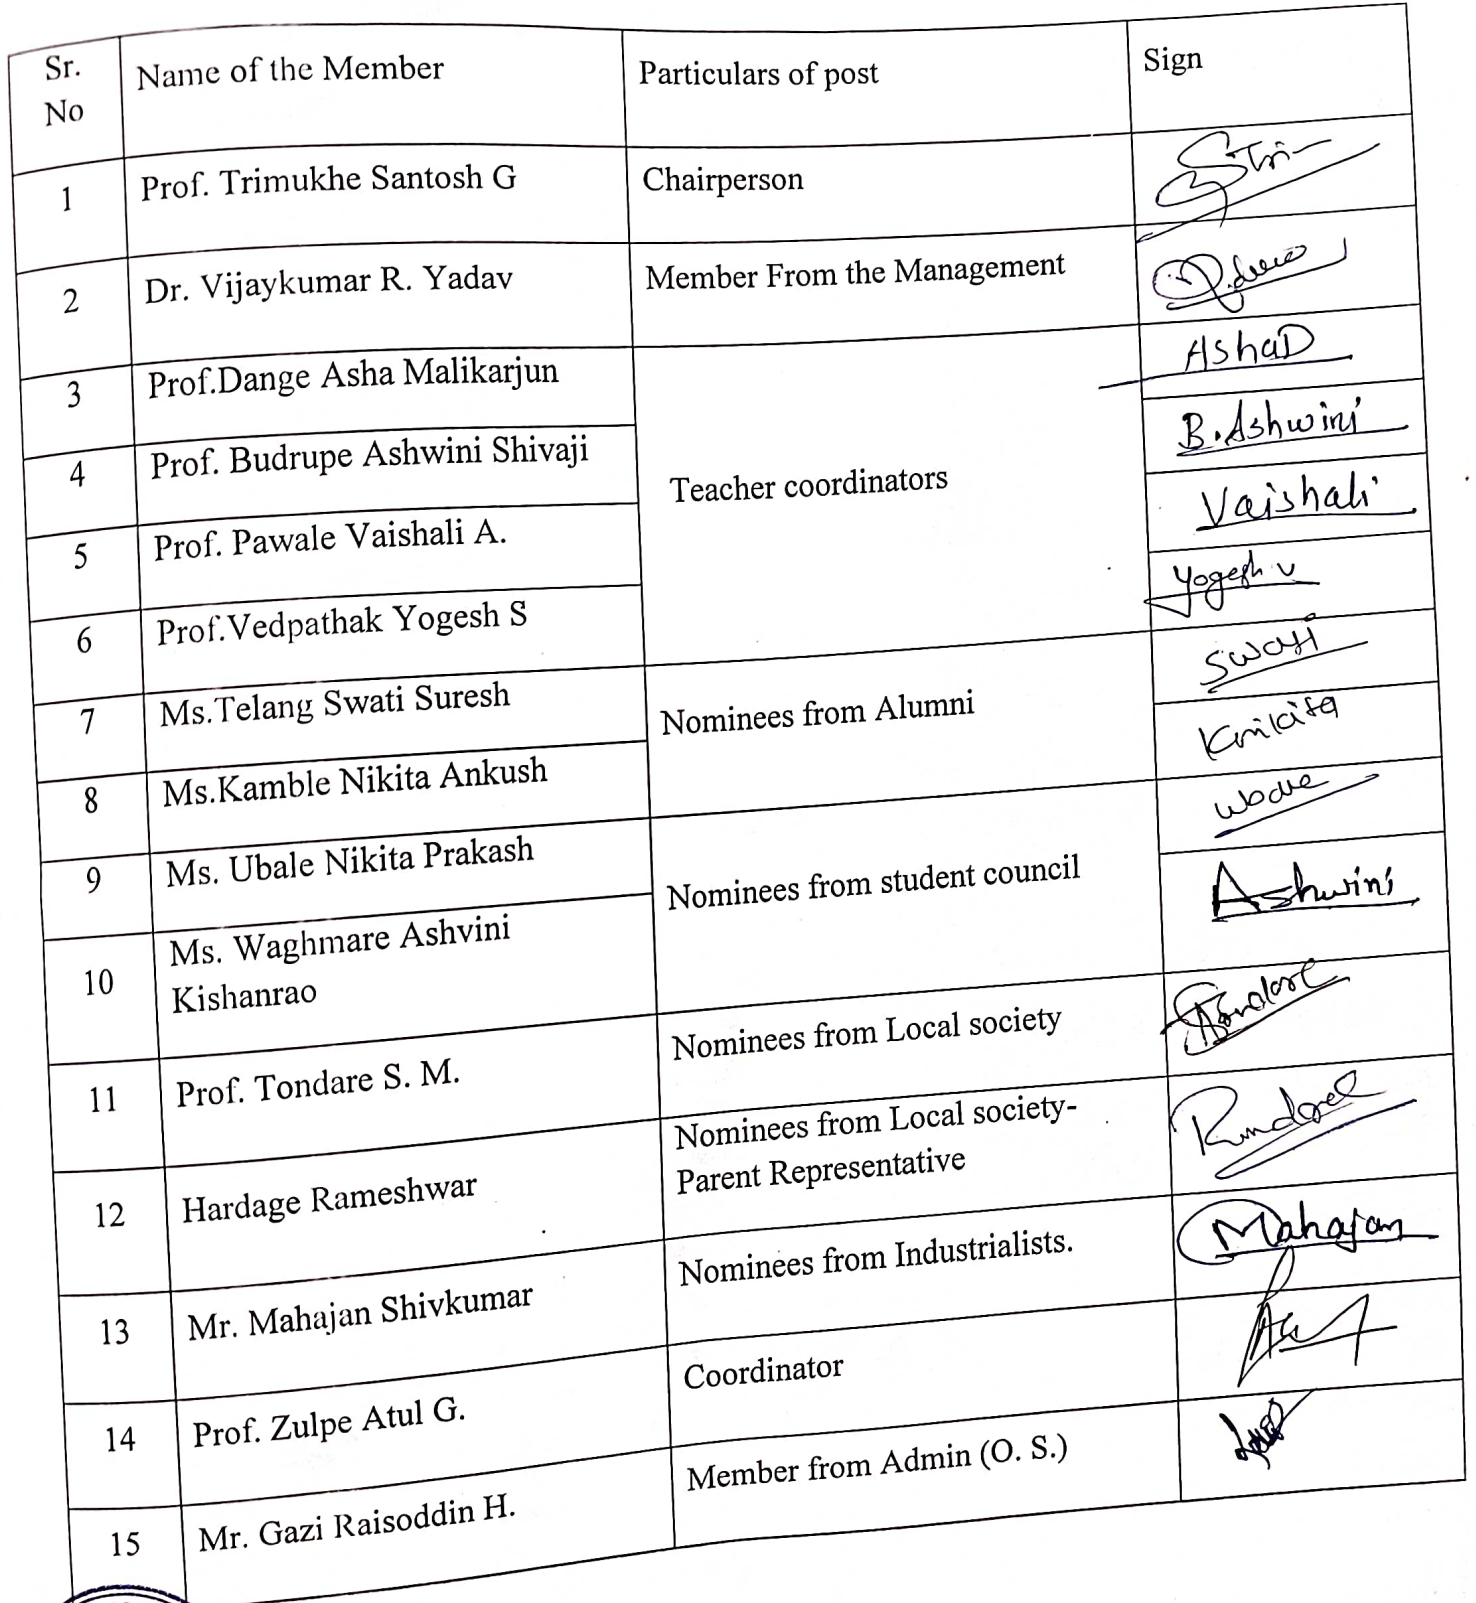 Sr. No Name of the Member Particulars of post Sign
1 Prof. Trimukhe Santosh G Chairperson
2 Dr. Vijaykumar R. Yadav Member From the Management
3 Prof.Dange Asha Malikarjun Teacher coordinators AshaD
4 Prof. Budrupe Ashwini Shivaji B.Ashwini
5 Prof. Pawale Vaishali A. Vaishali
6 Prof.Vedpathak Yogesh S Yogesh v
7 Ms.Telang Swati Suresh Nominees from Alumni Swati
8 Ms.Kamble Nikita Ankush Knikita
9 Ms. Ubale Nikita Prakash Nominees from student council
10 Ms. Waghmare Ashvini Ashwini
Kishanrao
11 Prof. Tondare S. M. Nominees from Local society Tondare
12 Hardage Rameshwar Nominees from Local society-
Parent Representative
13 Mr. Mahajan Shivkumar Nominees from Industrialists. Mahajan
14 Prof. Zulpe Atul G. Coordinator
15 Mr. Gazi Raisoddin H. Member from Admin (O. S.)